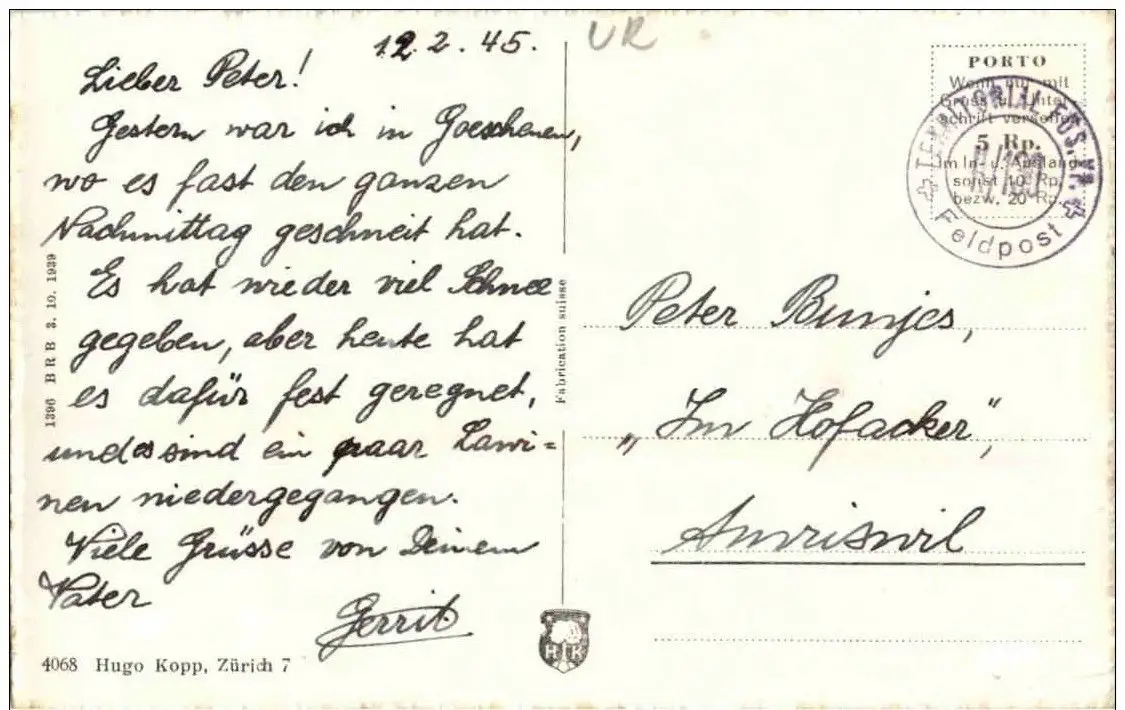 12.2.45.
Lieber Peter!
Gestern war ich in Goeschenen,
wo es fast den ganzen
Nachmittag geschneit hat.
Es hat wieder viel Schnee
gegeben, aber heute hat
es dafür fest geregnet,
und es sind ein paar Lawi=
nen niedergegangen.
Viele Grüsse von Deinem
Vater
Gerrit
4068 Hugo Kopp, Zürich 7
1396 BRB 3. 10. 1939
Fabrication suisse
HK
UR
PORTO
Wenn nur mit
Gruss u. Unter-
schrift versehen
5 Rp.
Im In- u. Ausland
sonst 10 Rp.
bezw. 20 Rp.
TERRITORIAL FÜS. Kp.
Feldpost
Peter Bunjes,
„Im Hofacker",
Amriswil